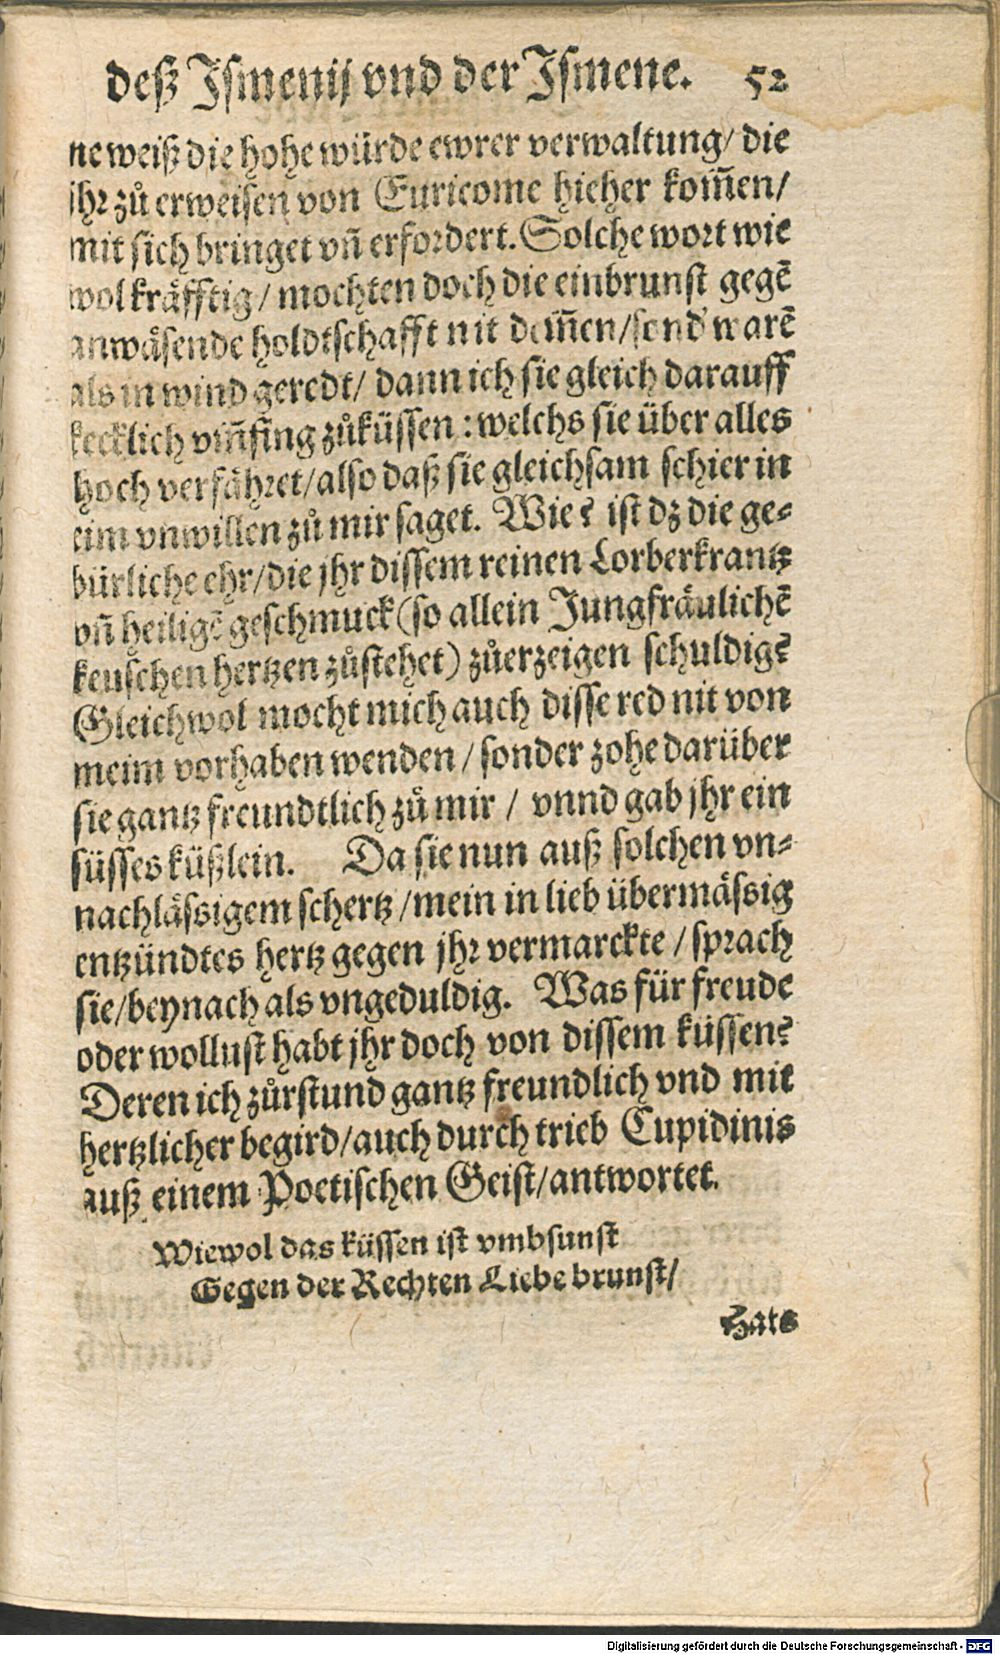 deß Jsmenij vnd der Jsmene. 52
ne weiß die hohe würde ewrer verwaltung/ die
jhr zů erweisen von Euricome hieher kom̃en/
mit sich bringet vñ erfordert. Solche wort wie
wol kräfftig/ mochten doch die einbrunst gegẽ
anwäsende holdtschafft nit dem̃en/ sond' warẽ
als in wind geredt/ dann ich sie gleich darauff
kecklich vm̃fing zůküssen: welchs sie über alles
hoch verfähret/ also daß sie gleichsam schier in
eim vnwillen zů mir saget. Wie? ist dz die ge-
bürliche ehr/ die jhr dissem reinen Lorberkrantz
vñ heiligẽ geschmuck (so allein Jungfräulichẽ
keuschen hertzen zůstehet) zůerzeigen schuldig?
Gleichwol mocht mich auch disse red nit von
meim vorhaben wenden/ sonder zohe darüber
sie gantz freundtlich zů mir/ vnnd gab jhr ein
süsses küßlein. Da sie nun auß solchen vn-
nachläßsigem schertz/ mein in lieb übermäßsig
entzündtes hertz gegen jhr vermarckte/ sprach
sie/ beynach als vngeduldig. Was für freude
oder wollust habt jhr doch von dissem küssen?
Deren ich zůrstund gantz freundlich vnd mit
hertzlicher begird/ auch durch trieb Cupidinis
auß einem Poetischen Geist/ antwortet.
Wiewol das küssen ist vmbsunst
Gegen der Rechten Liebe brunst/
Hats
Digitalisierung gefördert durch die Deutsche Forschungsgemeinschaft - DFG